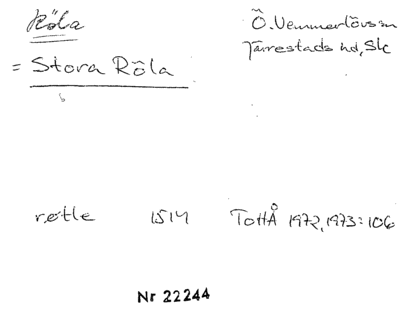 Röla
Ö. Vemmerlövs sn
= Stora Röla
Järrestads hd, Sk
røtle 1514 TottÅ 1972, 1973:106
Nr 22244